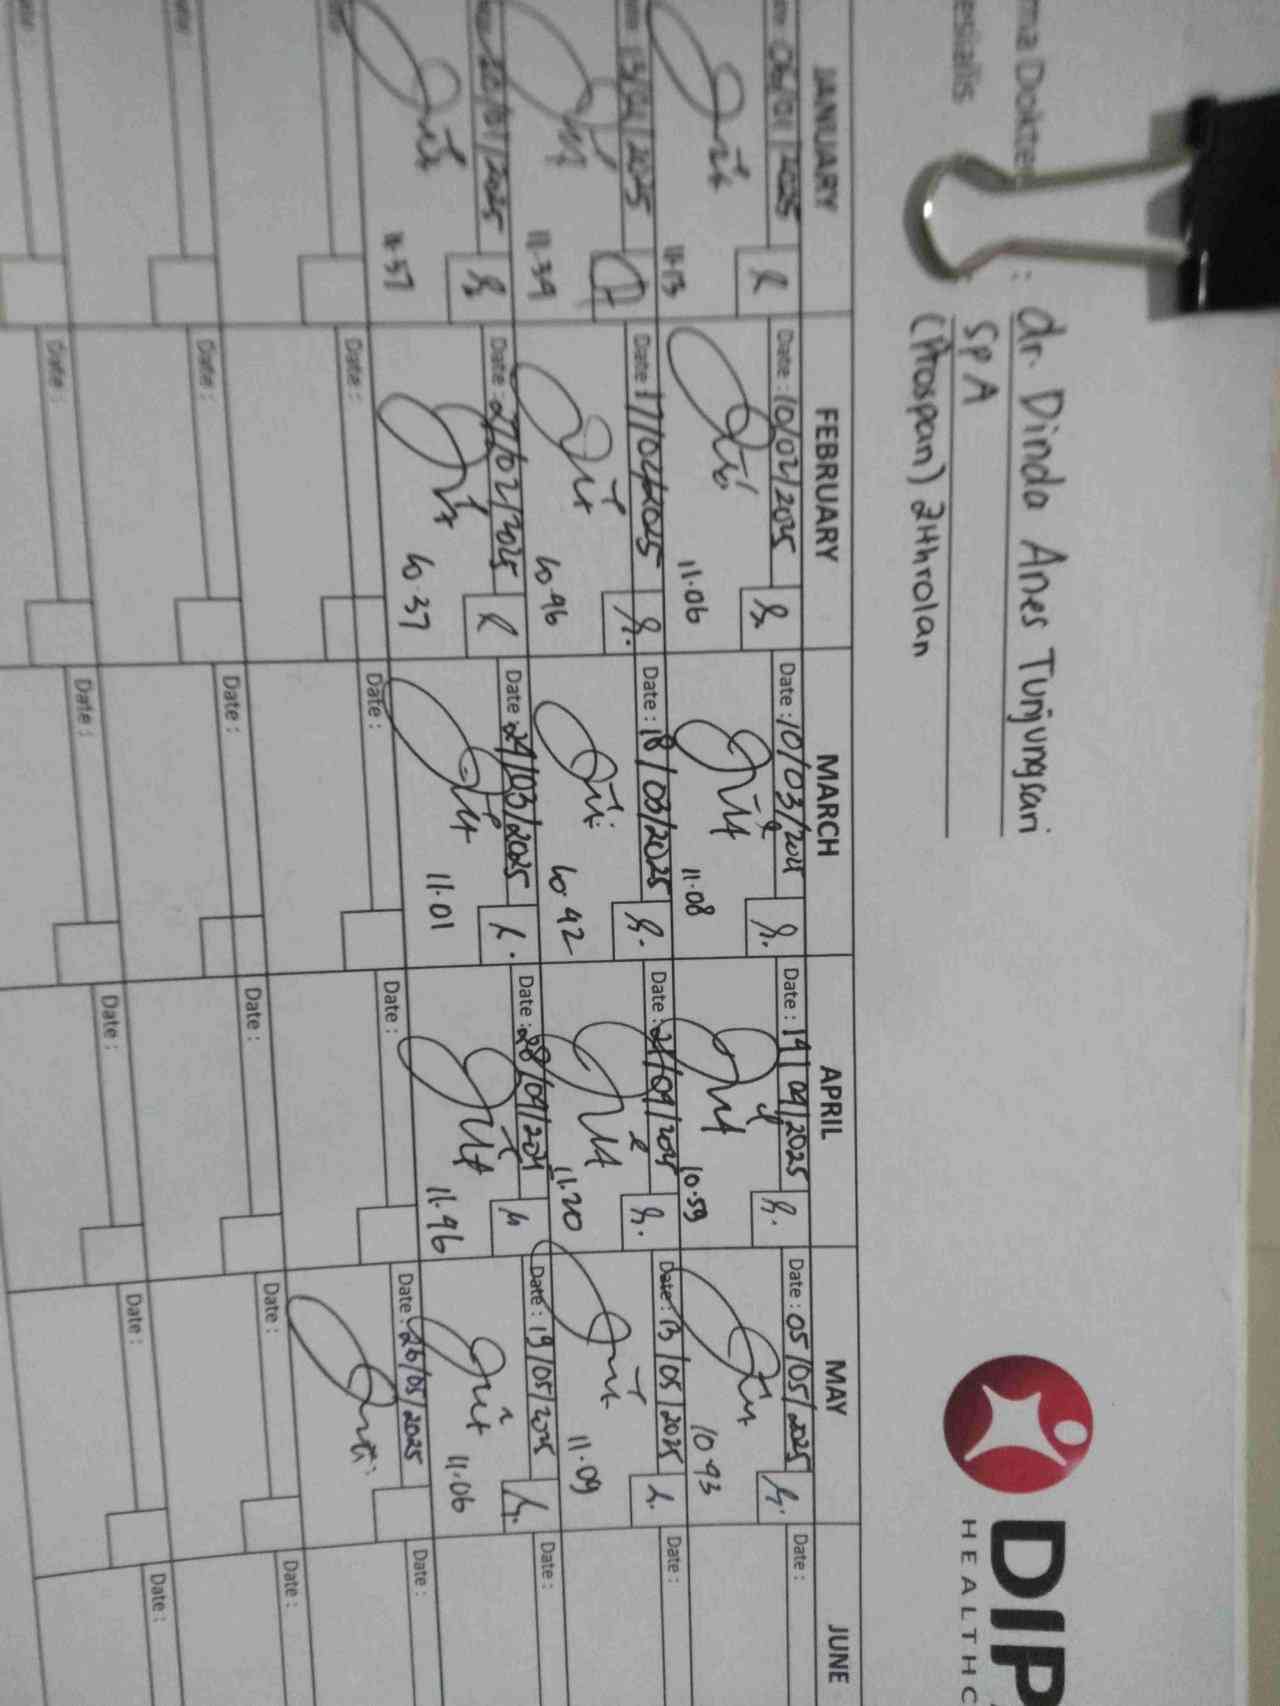 dr. Dinda Anes Tunjungsari
Sp A
(Prospan) 2Hhrolan
DIP
HEALTHC
JANUARY FEBRUARY MARCH APRIL MAY JUNE
06/01/2025 Date : 10/02/2025 Date : 10/03/202 Date : 14/04/2025 Date : 05/05/2025 Date :
11.13 11.06 11.08 10.59 10.43
Date : 17/02/2025 Date : 18/03/2025 Date : 21/04/2025 Date : 13/05/2025 Date :
11.39 10.46 10.42 11.20 11.09
20/01/2025 Date : 27/02/2025 Date : 24/03/2025 Date : 28/04/202 Date : 19/05/2025 Date :
11.37 10.37 11.01 11.46 11.06
Date : Date : Date : Date : 26/05/2025 Date :
Date : Date : Date : Date : Date :
Date : Date : Date : Date : Date :